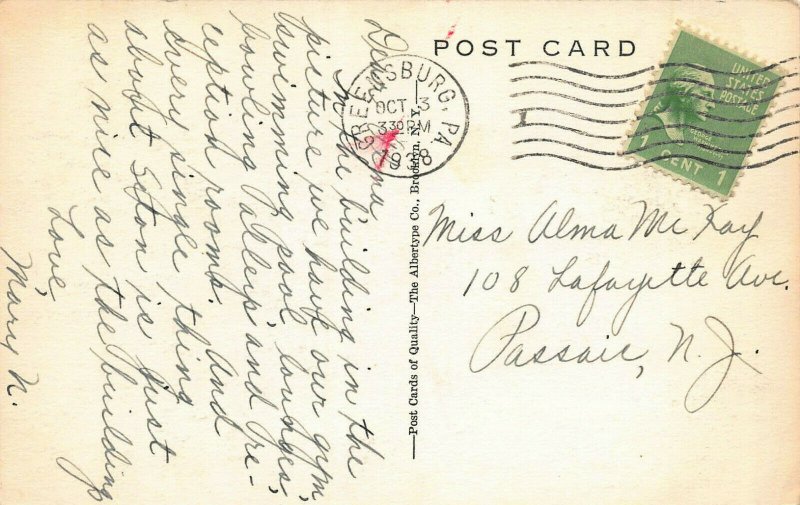 POST CARD
GREENSBURG, PA.
OCT 3
330 PM
1938
UNITED
STATES
POSTAGE
1 CENT 1
Miss Alma McKay
108 Lafayette Ave.
Passaic, N.J.
—Post Cards of Quality—The Albertype Co., Brooklyn, N. Y.—
Dear
In the building in the
picture we have our gym
swimming pool, lounges,
bowling alleys, and re-
ception rooms. And
every single thing
about Seton is just
as nice as the building
Love
Mary N.